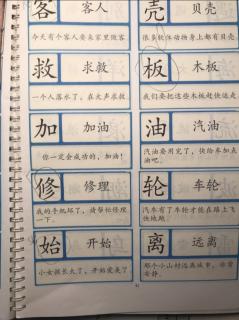 客 客人
今天有个客人要来家里做客
壳 贝壳
很多软体动物身上都有贝壳
救 求救
一个人落水了，在大声求救
板 木板
我们要把这些木板赶快运走
加 加油
你一定会成功的，加油！
油 汽油
汽油要用完了，快给车加点
油吧。
修 修理
我的手机坏了，请帮忙修理
一下。
轮 车轮
汽车有了车轮才能在路上飞
快地跑。
始 开始
小女孩长大了，开始爱美了
离 远离
那个小山村远离城市，非常
安静。